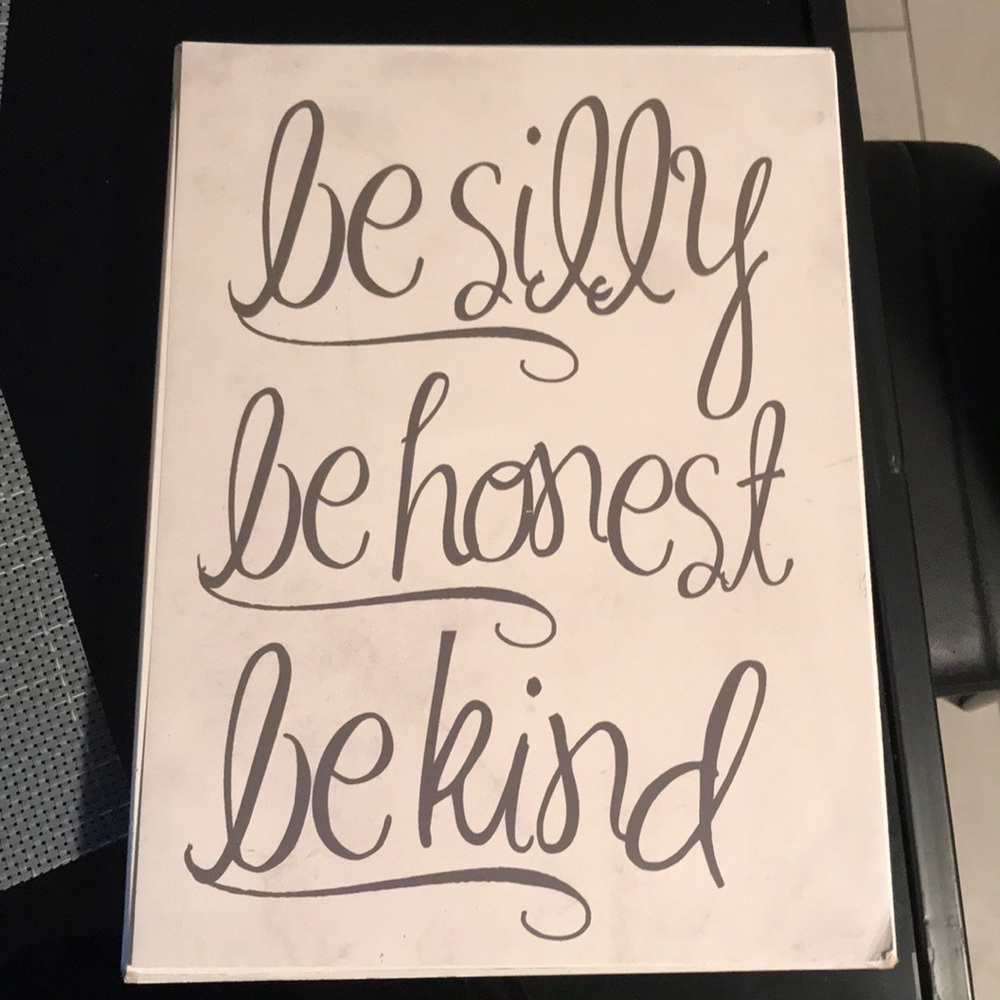 be silly
be honest
be kind